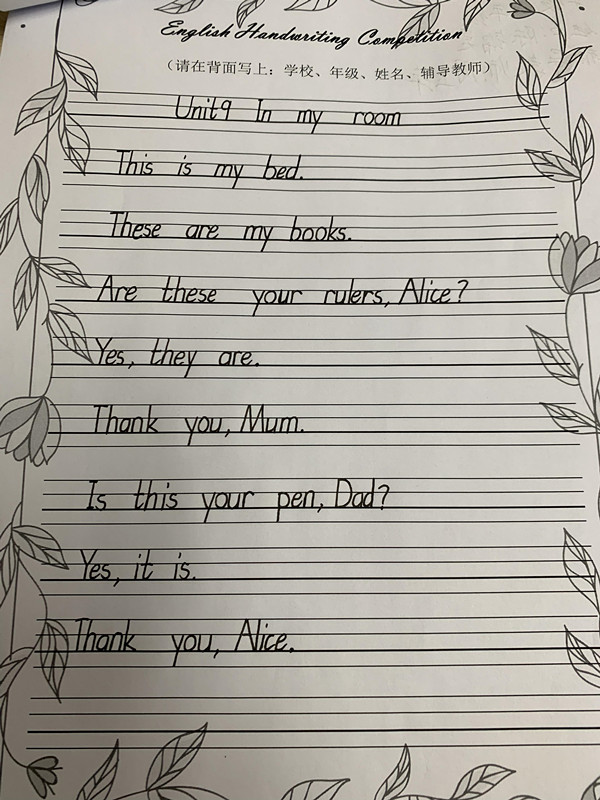 English Handwriting Competition
（请在背面写上：学校、年级、姓名、辅导教师）
Unit9 In my room
This is my bed.
These are my books.
Are these your rulers, Alice?
Yes, they are.
Thank you, Mum.
Is this your pen, Dad?
Yes, it is.
Thank you, Alice.